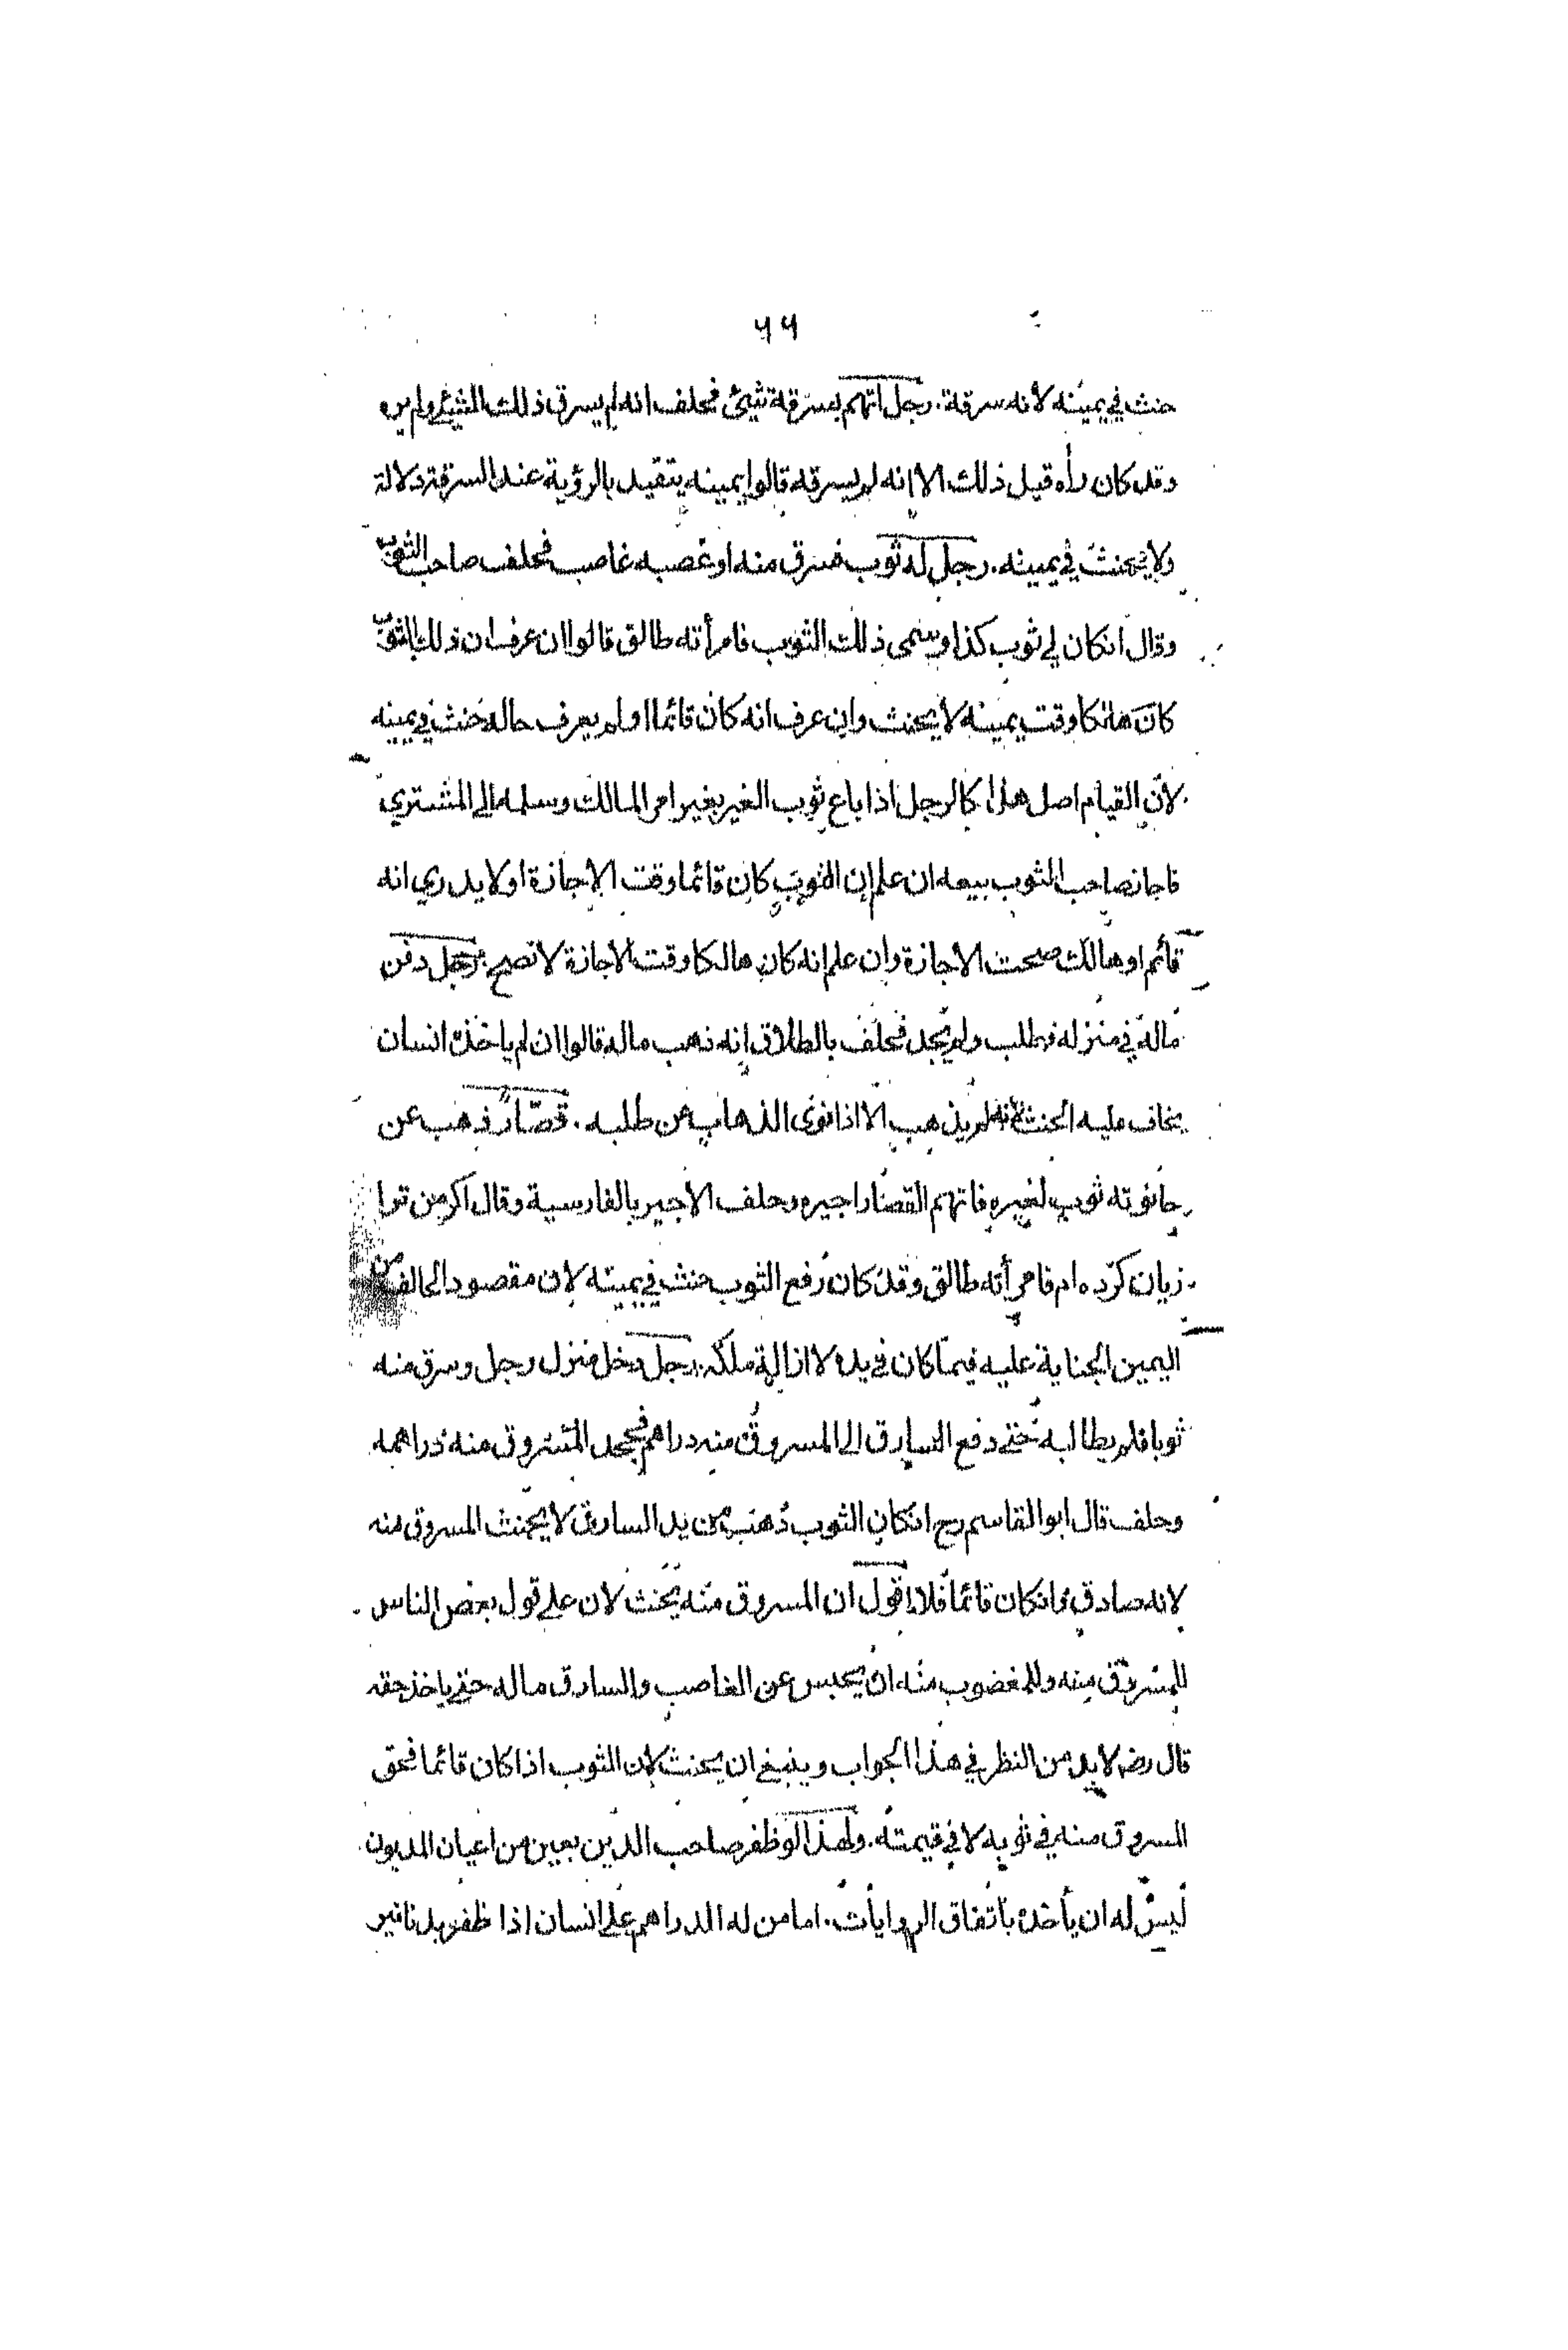 ٦٦
حنث في يمينه لانه سرقة. رجل اتهم بسرقة شيئ فحلف انه لم يسرق ذلك الشيئ ولم يره
وقد كان رأه قبل ذلك الا انه لم يسرقه قالوا يمينه يتقيد بالرؤية عند السرقة دلالة
ولا يحنث في يمينه. رجل له ثوب فسرق منه او غصبه غاصب فحلف صاحب الثوب
وقال انكان لي ثوب كذا وسمى ذلك الثوب فامرأته طالق قالوا ان عرف ان ذلك الثوب
كان هالكا وقت يمينه لا يحنث وان عرف انه كان قائما او لم يعرف حاله حنث في يمينه
لان القيام اصل هذا كالرجل اذا باع ثوب الغير بغير امر المالك وسلمه الى المشتري
فاجاز صاحب الثوب بيعه ان علم ان الثوب كان قائما وقت الاجازة او لا يدري انه
قائم او هالك صحت الاجازة وان علم انه كان هالكا وقت الاجازة لا تصح. رجل دفن
ماله في منزله فطلب ولم يجد فحلف بالطلاق انه ذهب ماله قالوا ان لم ياخذه انسان
يخاف عليه الحنث لانه لم يذهب الا اذا نوى الذهاب عن طلبه. قصار ذهب عن
حانوته ثوب لغيره فاتهم القصار اجيره وحلف الاجير بالفارسية وقال اكر من ترا
زيان كرده ام فامرأته طالق وقد كان رفع الثوب حنث في يمينه لان مقصود الحالف من
اليمين الجناية عليه فيما كان في يده لا ازالة ملكه. رجل دخل منزل رجل وسرق منه
ثوبا فلم يطالبه حتى دفع السارق الى المسروق منه دراهم فجحد المسروق منه دراهمه
وحلف قال ابو القاسم رح انكان الثوب ذهب من يد السارق لا يحنث المسروق منه
لانه صادق وانكان قائما فلا اقول ان المسروق منه يحنث لان على قول بعض الناس
للمسروق منه وللمغضوب منه ان يحبس عن الغاصب والسارق ماله حتى ياخذ حقه
قال رضـ لا بد من النظر في هذا الجواب وينبغي ان يحنث لان الثوب اذا كان قائما فحق
المسروق منه في ثوبه لا في قيمته. ولهذا لو ظفر صاحب الدين بعين من اعيان المديون
ليس له ان يأخذه باتفاق الروايات. اما من له الدراهم على انسان اذا ظفر بدنانير